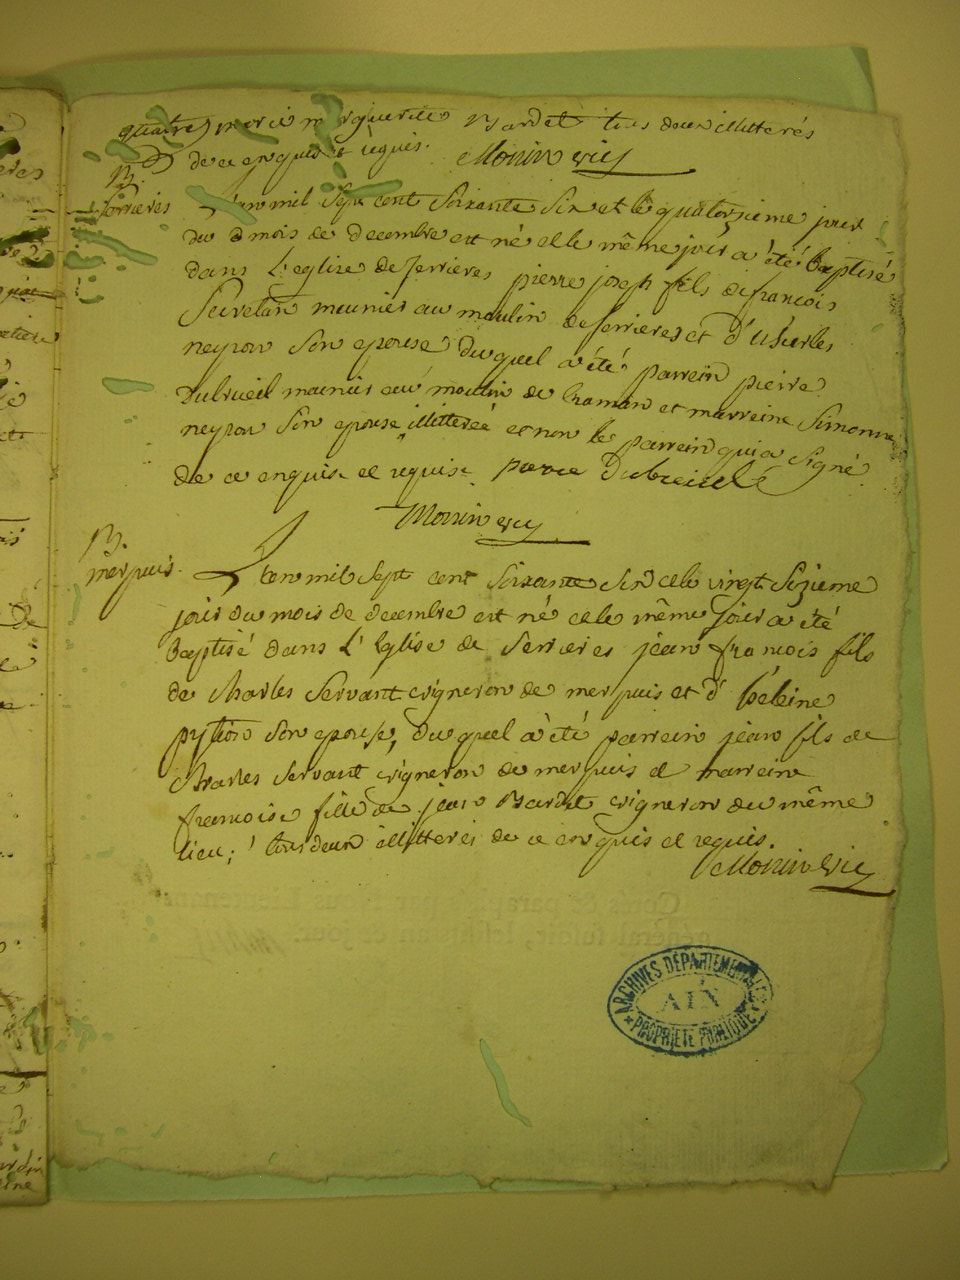 marie marguerite Bardet tous deux illitterés
de ce enquis et requis. Monin vic
B.
ferrieres
L'an mil sept cent soixante six et le quatorzieme jour
du mois de decembre est né et le même jour a été baptisé
dans l'eglise de serrieres pierre joseph fils de françois
Secretan meunier au moulin de serrieres et d'
neyron son epouse duquel a été parrein pierre
Dubrueil meunier au moulin de et marreine Simonne
neyron son epouse illitterée et non le parrein qui a signé
de ce enquise et requise pierre Dubreuil
Monin vic
B.
merpuis.
L'an mil sept cent soixante six et le vingt sizieme
jour du mois de decembre est né et le même jour a été
baptisé dans l'Eglise de serrieres jean françois fils
de charles servant vigneron de merpuis et d'heleine
son epouse, duquel a été parrein jean fils de
charles servant vigneron de merpuis et marreine
francoise fille de jean Bardet vigneron du même
lieu; tous deux illitteres de ce enquis et requis.
Monin vic
Cotté & paraphé par Nous Lieutenant
général susdit, le jour
ARCHIVES DÉPARTEMENTALES
AIN
* PROPRIÉTÉ PUBLIQUE *